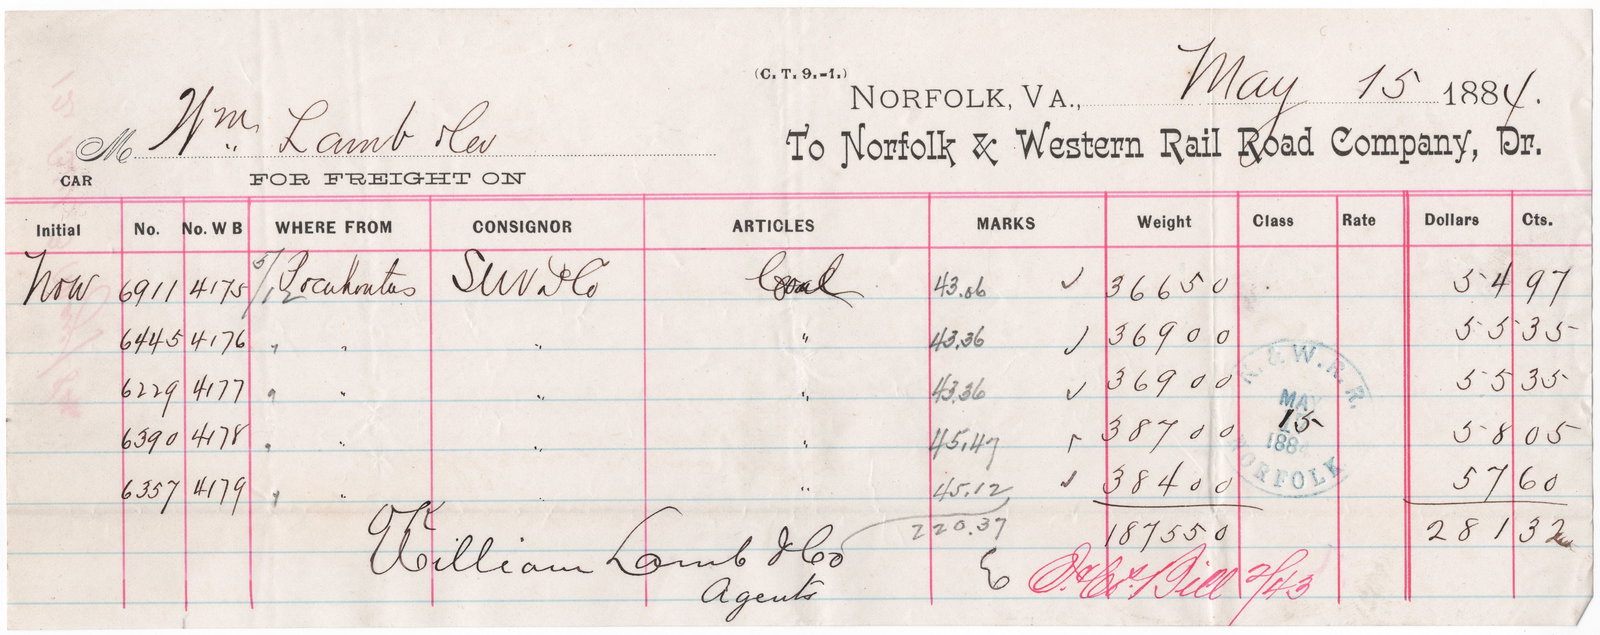 (C. T. 9.-1.)
NORFOLK, VA., May 15 1884.
M Wm. Lamb & Co
To Norfolk & Western Rail Road Company, Dr.
CAR FOR FREIGHT ON
Initial No. No. W B WHERE FROM CONSIGNOR ARTICLES MARKS Weight Class Rate Dollars Cts.
N&W 6911 4175 5/12 Pocahontas SUV & Co Coal 43.06 ✓ 36650 54 97
6445 4176 " " " " 43.36 ✓ 36900 55 35
6229 4177 " " " " 43.36 ✓ 36900 55 35
6390 4178 " " " " 45.47 ✓ 38700 58 05
6357 4179 " " " " 45.12 ✓ 38400 57 60
220.37 187550 281 32
N. & W. R. R.
MAY
15
1884
NORFOLK
OK
William Lamb & Co
Agents
Bill 2/43